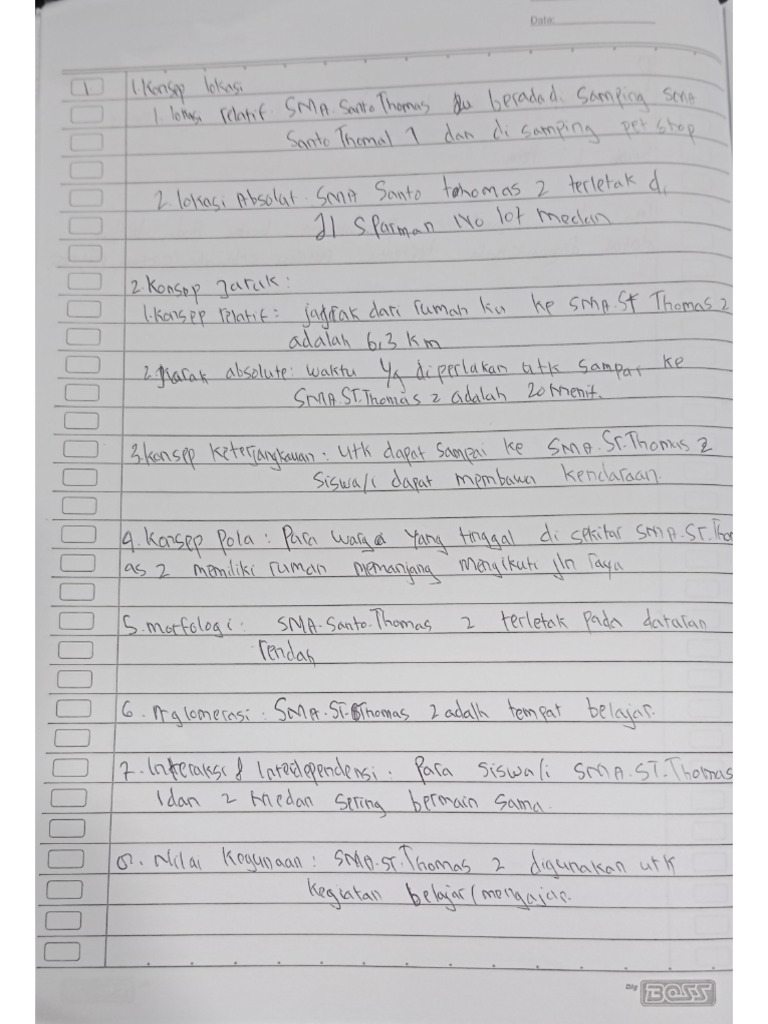 Date:
1 1. Konsep lokasi
1 lokasi relatif SMA Santo Thomas berada di samping SMA
Santo Thomal 1 dan di samping pet shop
2. lokasi Absolut SMA Santo tohomas 2 terletak di
Jl S. Parman No 107 medan
2. Konsep Jarak :
1. Konsep relatif : jarak dari rumah ku ke SMA.St Thomas 2
adalah 6,3 km
2. Jarak absolute : waktu yg diperlakan utk sampai ke
SMA.ST.Thomas 2 adalah 20 menit.
3. konsep keterjangkauan : utk dapat sampai ke SMA.ST.Thomas 2
siswa/i dapat membawa kendaraan.
4. Konsep pola : Para warga yang tinggal di sekitar SMA.ST.Thom
as 2 memiliki rumah memanjang mengikuti jln raya
5. morfologi : SMA.Santo.Thomas 2 terletak pada dataran
rendah
6. Aglomerasi : SMA.ST.Thomas 2 adalh tempat belajar.
7. Interaksi & Interdependensi : Para siswa/i SMA.ST.Thomas
1 dan 2 medan sering bermain sama.
8. Nilai Kegunaan : SMA.ST.Thomas 2 digunakan utk
kegiatan belajar/mengajar.
BOSS